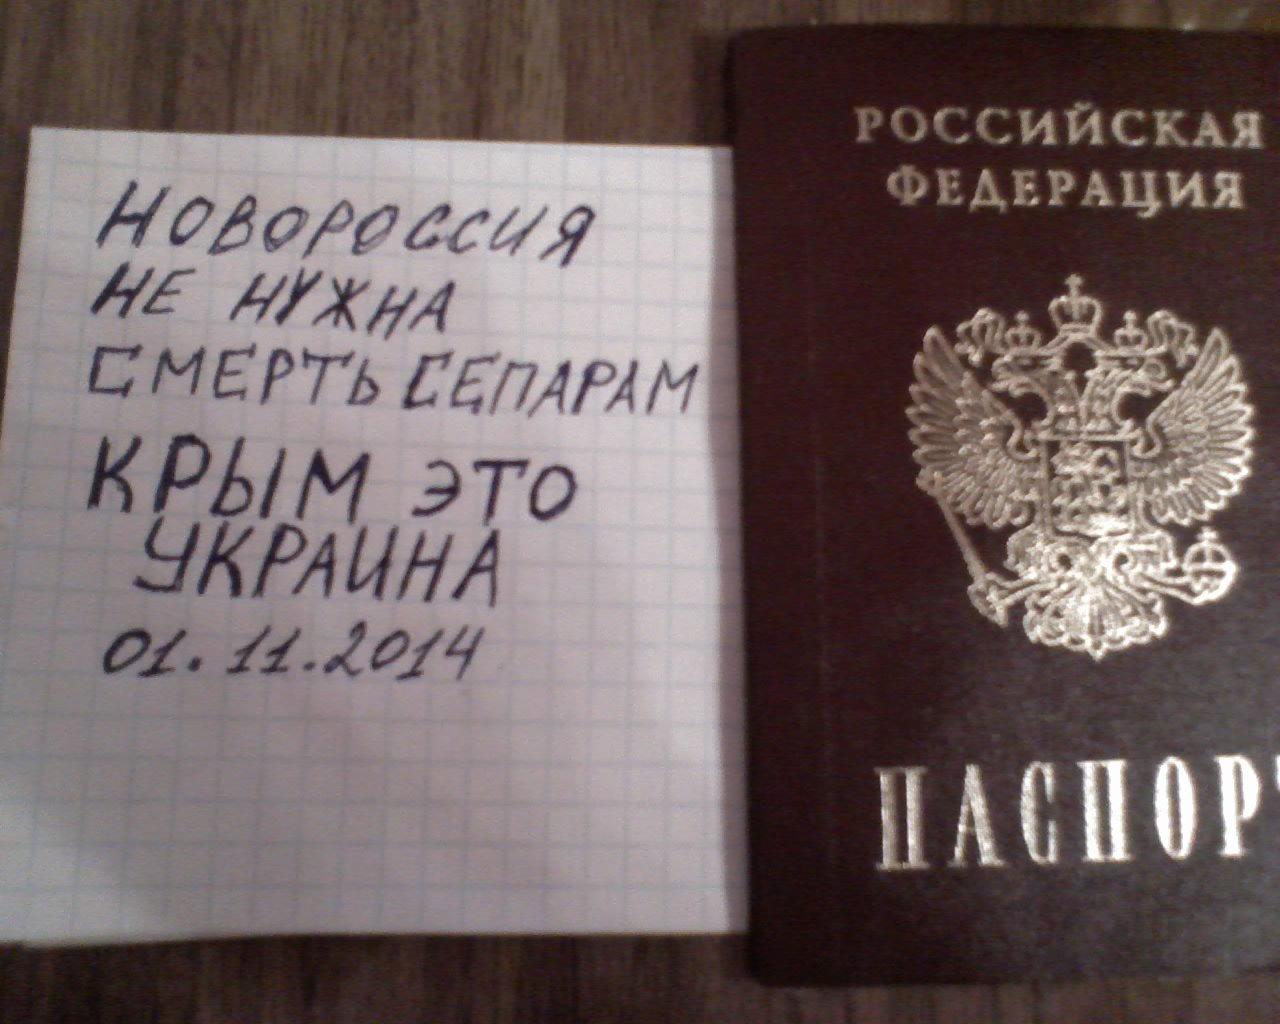 НОВОРОССИЯ
НЕ НУЖНА
СМЕРТЬ СЕПАРАМ
КРЫМ ЭТО
УКРАИНА
01.11.2014
РОССИЙСКАЯ
ФЕДЕРАЦИЯ
ПАСПОРТ